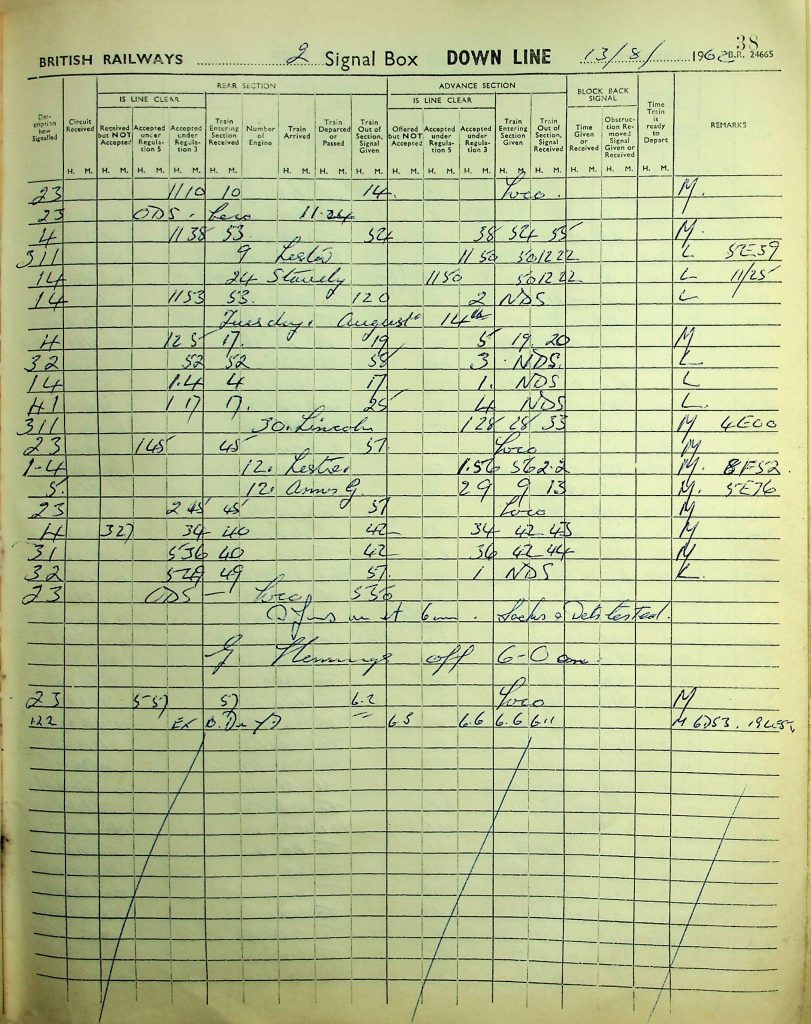 38
BRITISH RAILWAYS 2 Signal Box DOWN LINE 13/8/ 1962 B.R. 24665
REAR SECTION ADVANCE SECTION BLOCK BACK SIGNAL
IS LINE CLEAR IS LINE CLEAR
Description how Signalled Circuit Received Received but NOT Accepted Accepted under Regulation 5 Accepted under Regulation 3 Train Entering Section Received Number of Engine Train Arrived Train Departed or Passed Train Out of Section, Signal Given Offered but NOT Accepted Accepted under Regulation 5 Accepted under Regulation 3 Train Entering Section Given Train Out of Section, Signal Received Time Given or Received Obstruction Removed Signal Given or Received Time Train is ready to Depart REMARKS
H. M. H. M. H. M. H. M. H. M. H. M. H. M. H. M. H. M. H. M. H. M. H. M. H. M. H. M. H. M. H. M.
23 11 10 10 14 Loco. M.
23 ODS. Loco 11.24
4 11 38 53. 54 38 54 55 M.
311 9 Lester 11 50 50 12 22 L 5E39
14 24 Stavely 11 50 50 12 22 L 11/25
14 11 53 53. 12 0 2 NDS L
Tuesday. August 14th
4 12 5 17. 19 5 19. 20 M
32 52 52 58 3 NDS. L
14 1.4 4 17 1. NDS L
41 1 17 17. 25 4 NDS L.
311 30. Lincoln 1 28 28 33 M 4E00
23 1 45 45 57 Loco M
1-4 12. Lestre. 1.56 56 2.2 M. 8F52.
5. 12. Annes G. 2 9 9 13 M. 5E36
23 2 45 45 57 Loco M
4 327 34 40 42 34 42 43 M
31 5 36 40 42 36 42 44 M
32 5 49 49 57. 1 NDS L.
23 ODS — Loco 5 50
on at 6am. Locks & Dets tested.
G Flemings off 6-0 am.
23 5 57 57 6.2 Loco M
1.2.2 Ex 6.5 6.6 6.6 6.11 M 6D53.